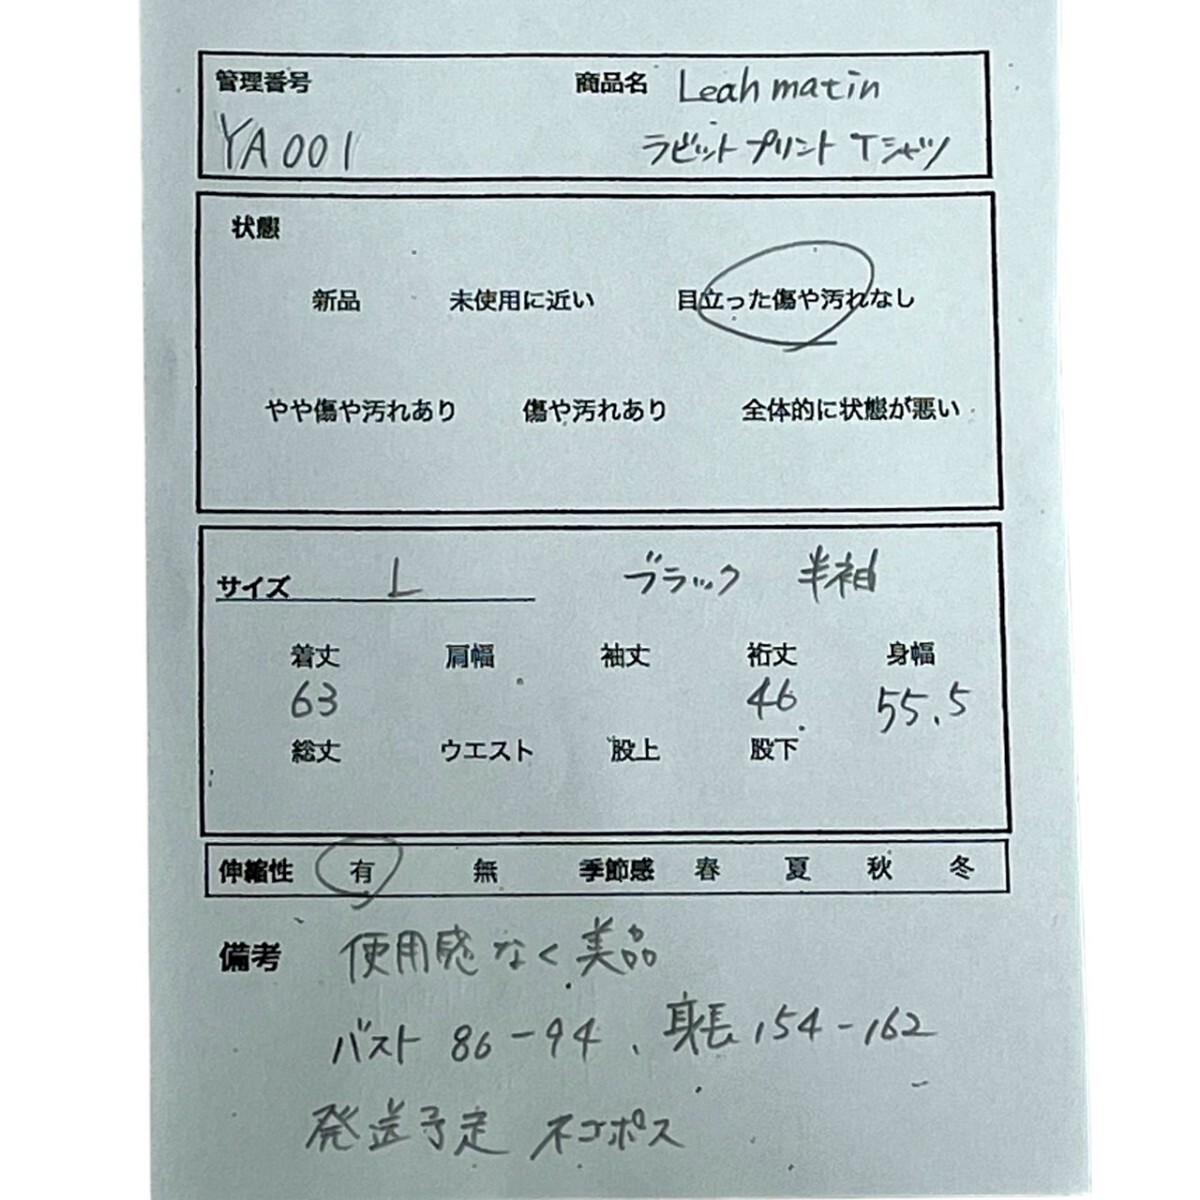 管理番号 商品名 Leah matin
YA001 ラビットプリントTシャツ
状態
新品 未使用に近い 目立った傷や汚れなし
やや傷や汚れあり 傷や汚れあり 全体的に状態が悪い
サイズ L ブラック 半袖
着丈 肩幅 袖丈 裄丈 身幅
63 46 55.5
総丈 ウエスト 股上 股下
伸縮性 有 無 季節感 春 夏 秋 冬
備考 使用感なく美品
バスト 86-94、身長154-162
発送予定 ネコポス